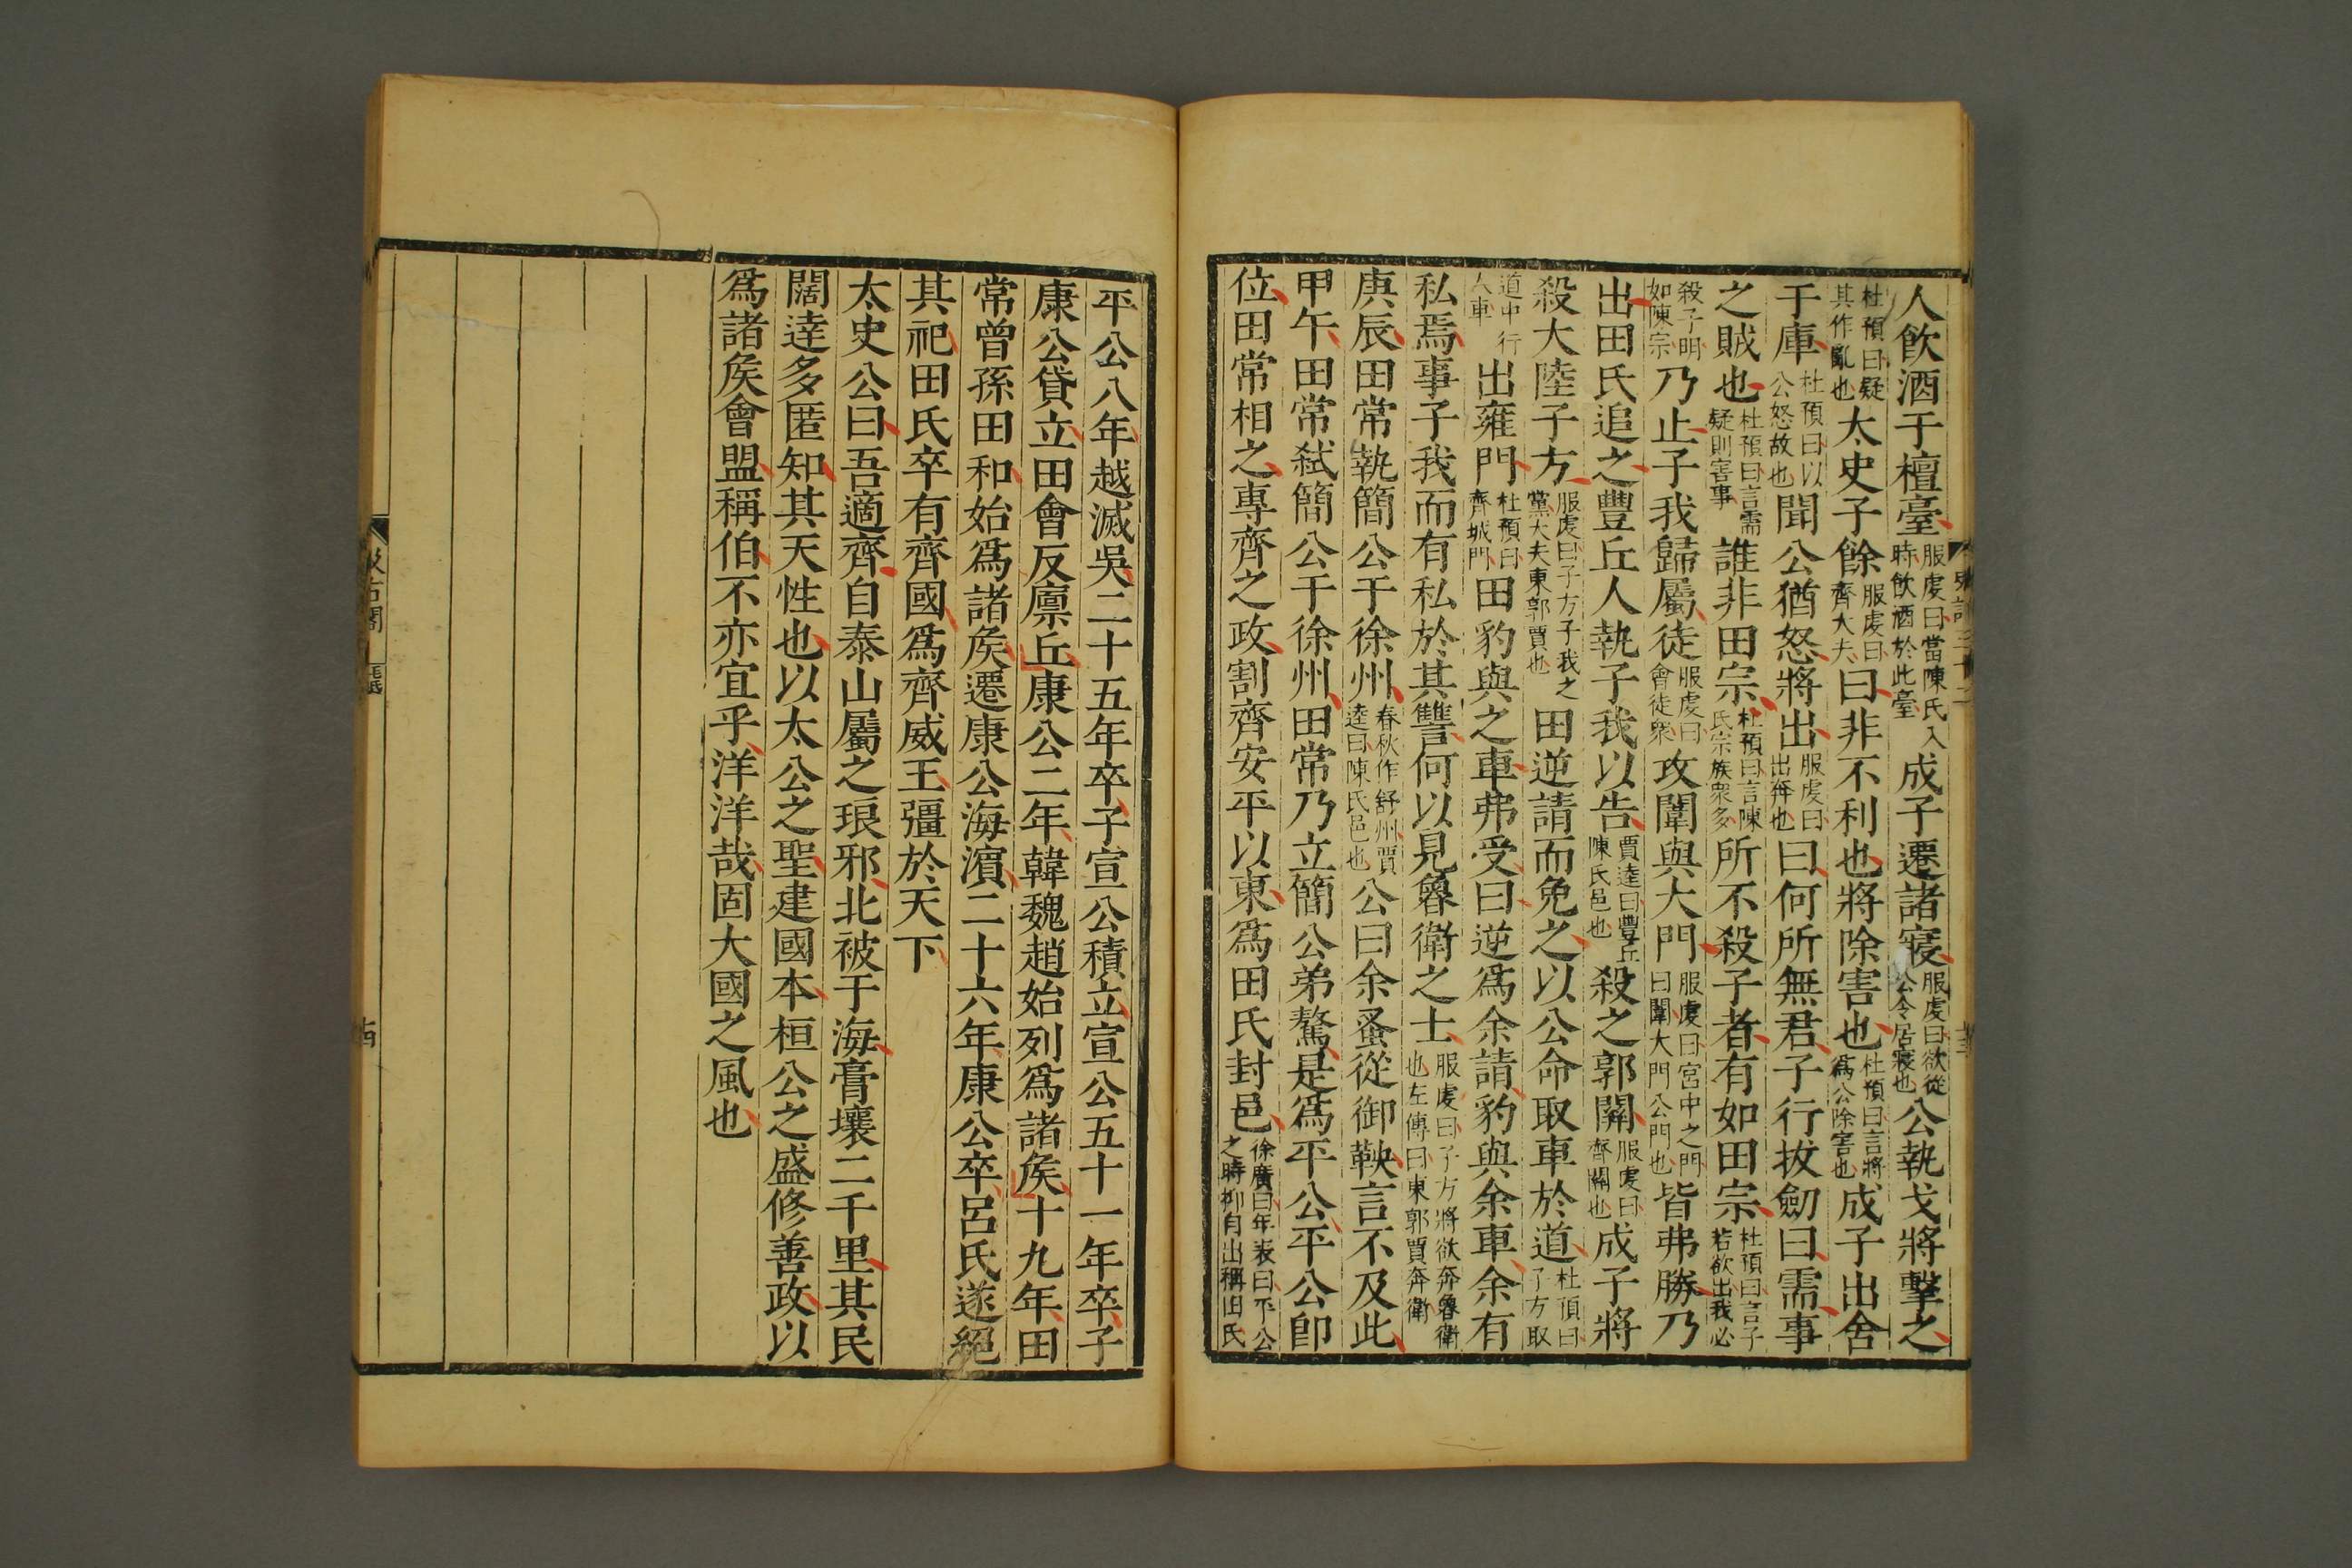 人飲酒于檀臺服虔曰當陳氏入時飲酒於此臺成子遷諸寢服虔曰欲從公令居寢也公執戈將擊之
杜預曰疑其作亂也太史子餘服虔曰齊大夫曰非不利也將除害也杜預曰言將爲公除害也成子出舍
于庫杜預曰以公怒故也聞公猶怒將出服虔曰出奔也曰何所無君子行拔劒曰需事
之賊也杜預曰言需疑則害事誰非田宗杜預曰言陳氏宗族衆多所不殺子者有如田宗杜預曰言子若欲出我必
殺子明如陳宗乃止子我歸屬徒服虔曰會徒衆攻闈與大門服虔曰宮中之門曰闈大門公門也皆弗勝乃
出田氏追之豐丘人執子我以告賈逵曰豐丘陳氏邑也殺之郭關服虔曰齊關也成子將
殺大陸子方服虔曰子方子我之黨大夫東郭賈也田逆請而免之以公命取車於道杜預曰子方取
道中行人車出雍門杜預曰齊城門田豹與之車弗受曰逆爲余請豹與余車余有
私焉事子我而有私於其讐何以見魯衛之士服虔曰子方將欲奔魯衛也左傳曰東郭賈奔衛
庚辰田常執簡公于徐州春秋作舒州賈逵曰陳氏邑也公曰余蚤從御鞅言不及此
甲午田常弒簡公于徐州田常乃立簡公弟驁是爲平公平公卽
位田常相之專齊之政割齊安平以東爲田氏封邑徐廣曰年表曰平公之時抑自出稱田氏
平公八年越滅吳二十五年卒子宣公積立宣公五十一年卒子
康公貸立田會反廩丘康公二年韓魏趙始列爲諸矦十九年田
常曾孫田和始爲諸矦遷康公海濱二十六年康公卒呂氏遂絕
其祀田氏卒有齊國爲齊威王彊於天下
太史公曰吾適齊自泰山屬之琅邪北被于海膏壤二千里其民
闊達多匿知其天性也以太公之聖建國本桓公之盛修善政以
爲諸矦會盟稱伯不亦宜乎洋洋哉固大國之風也